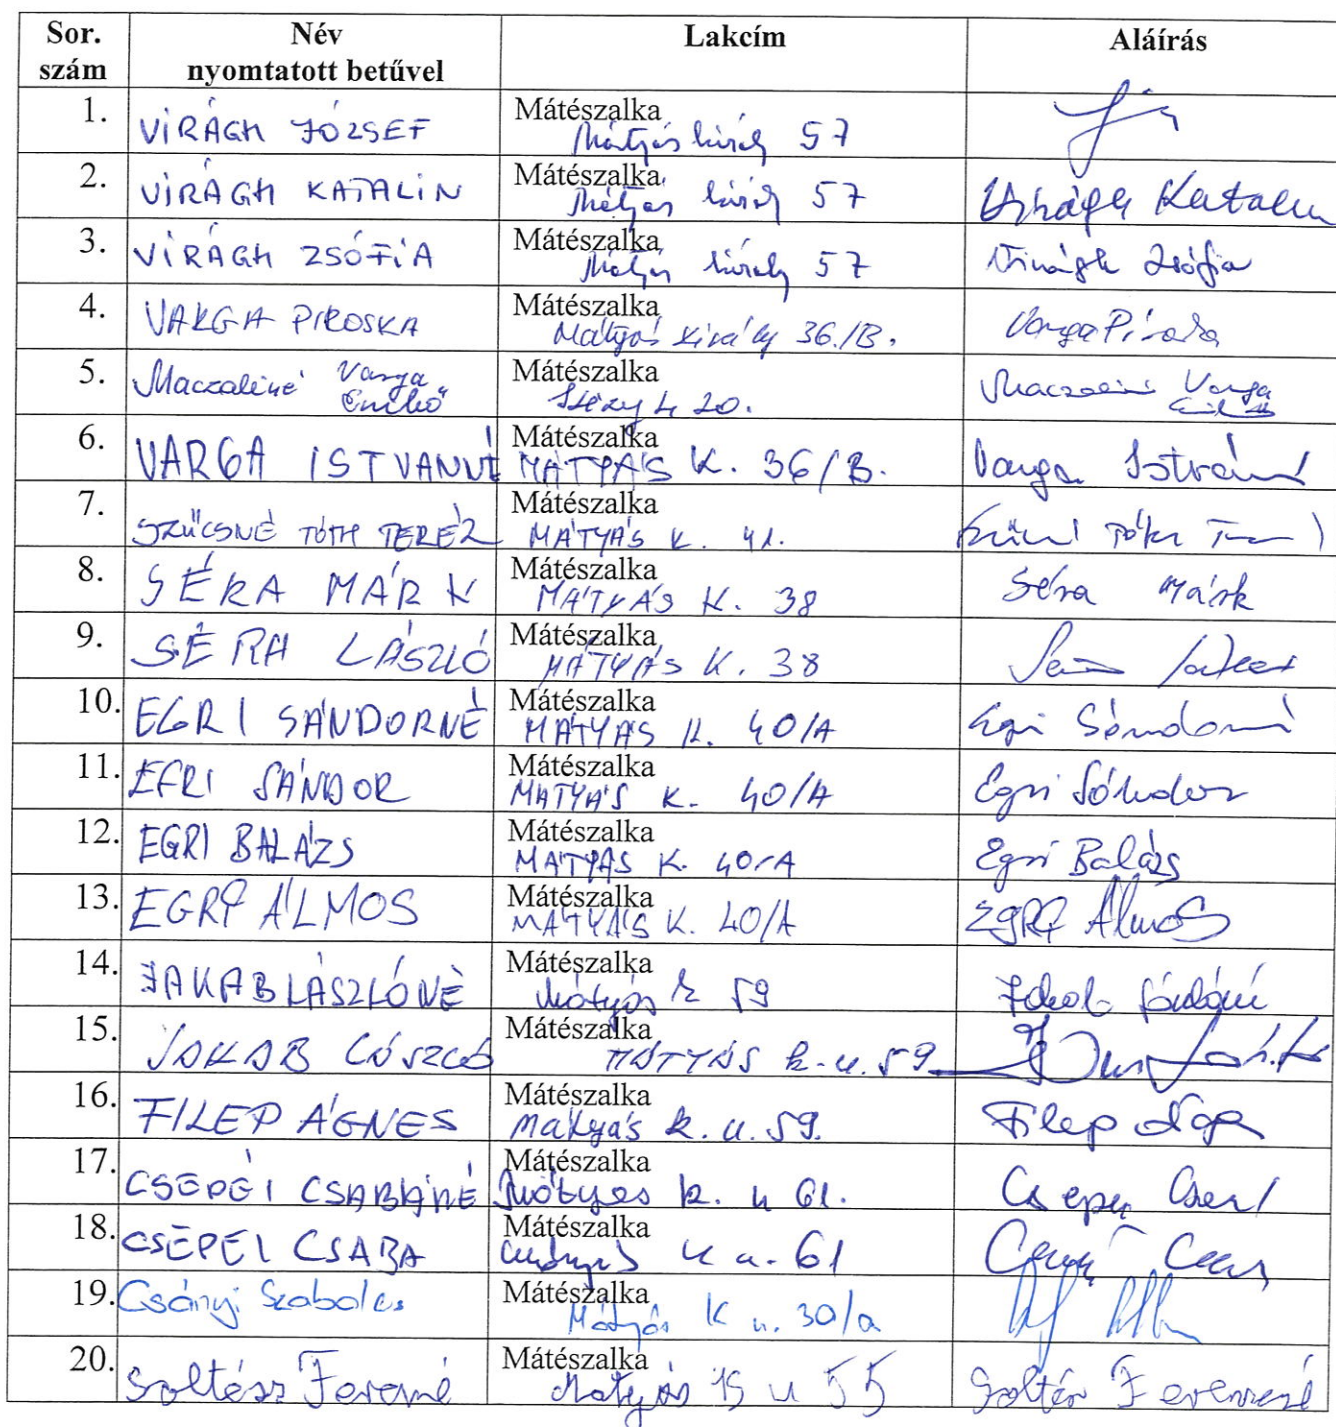 Sor. szám Név nyomtatott betűvel Lakcím Aláírás
1. VIRÁGH JÓZSEF Mátészalka Mátyás király 57
2. VIRÁGH KATALIN Mátészalka Mátyás király 57 Virágh Katalin
3. VIRÁGH ZSÓFIA Mátészalka Mátyás király 57 Virágh Zsófia
4. VARGA PIROSKA Mátészalka Mátyás király 36./B. Varga Piroska
5. Maczaliné Varga Enikő Mátészalka 20. Maczaliné Varga Enikő
6. VARGA ISTVANNÉ Mátészalka MÁTYÁS K. 36/B. Varga Istvánné
7. SZŰCSNÉ TÓTH TERÉZ Mátészalka MÁTYÁS K. 41. Szűcsné Tóth
8. SÉRA MÁRK Mátészalka MÁTYÁS K. 38 Séra Márk
9. SÉRA LÁSZLÓ Mátészalka MÁTYÁS K. 38
10. EGRI SÁNDORNÉ Mátészalka MÁTYÁS K. 40/A Egri Sándorné
11. EGRI SÁNDOR Mátészalka MATYÁS K. 40/A Egri Sándor
12. EGRI BALÁZS Mátészalka MATYÁS K. 40/A Egri Balázs
13. EGRY ÁLMOS Mátészalka MÁTYÁS K. 40/A EGRY Álmos
14. JAKAB LÁSZLÓNÉ Mátészalka Mátyás k 59 Jakab Lászlóné
15. JAKAB LÁSZLÓ Mátészalka MÁTYÁS k.u. 59
16. FILEP ÁGNES Mátészalka Mátyás k.u. 59. Filep Ágnes
17. CSEPEI CSABÁNÉ Mátészalka Mátyás k. u 61.
18. CSEPEI CSABA Mátészalka Mátyás k u. 61
19. Csányi Szabolcs Mátészalka Mátyás K u. 30/a
20. Soltész Ferencné Mátészalka Mátyás u 55 Soltész Ferencné